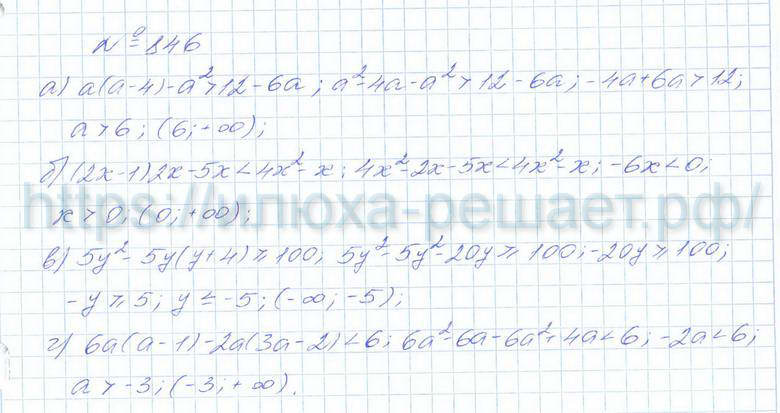 № 846
а) a(a-4)-a²>12-6a; a²-4a-a²>12-6a; -4a+6a>12;
a>6; (6; +∞);
б) (2x-1)2x-5x<4x²-x; 4x²-2x-5x<4x²-x; -6x<0;
https://клюха-решает.рф/
x>0; (0; +∞);
в) 5y²-5y(y+4)≥100; 5y²-5y²-20y≥100; -20y≥100;
-y≥5; y≤-5; (-∞; -5);
г) 6a(a-1)-2a(3a-2)<6; 6a²-6a-6a²+4a<6; -2a<6;
a>-3; (-3; +∞).